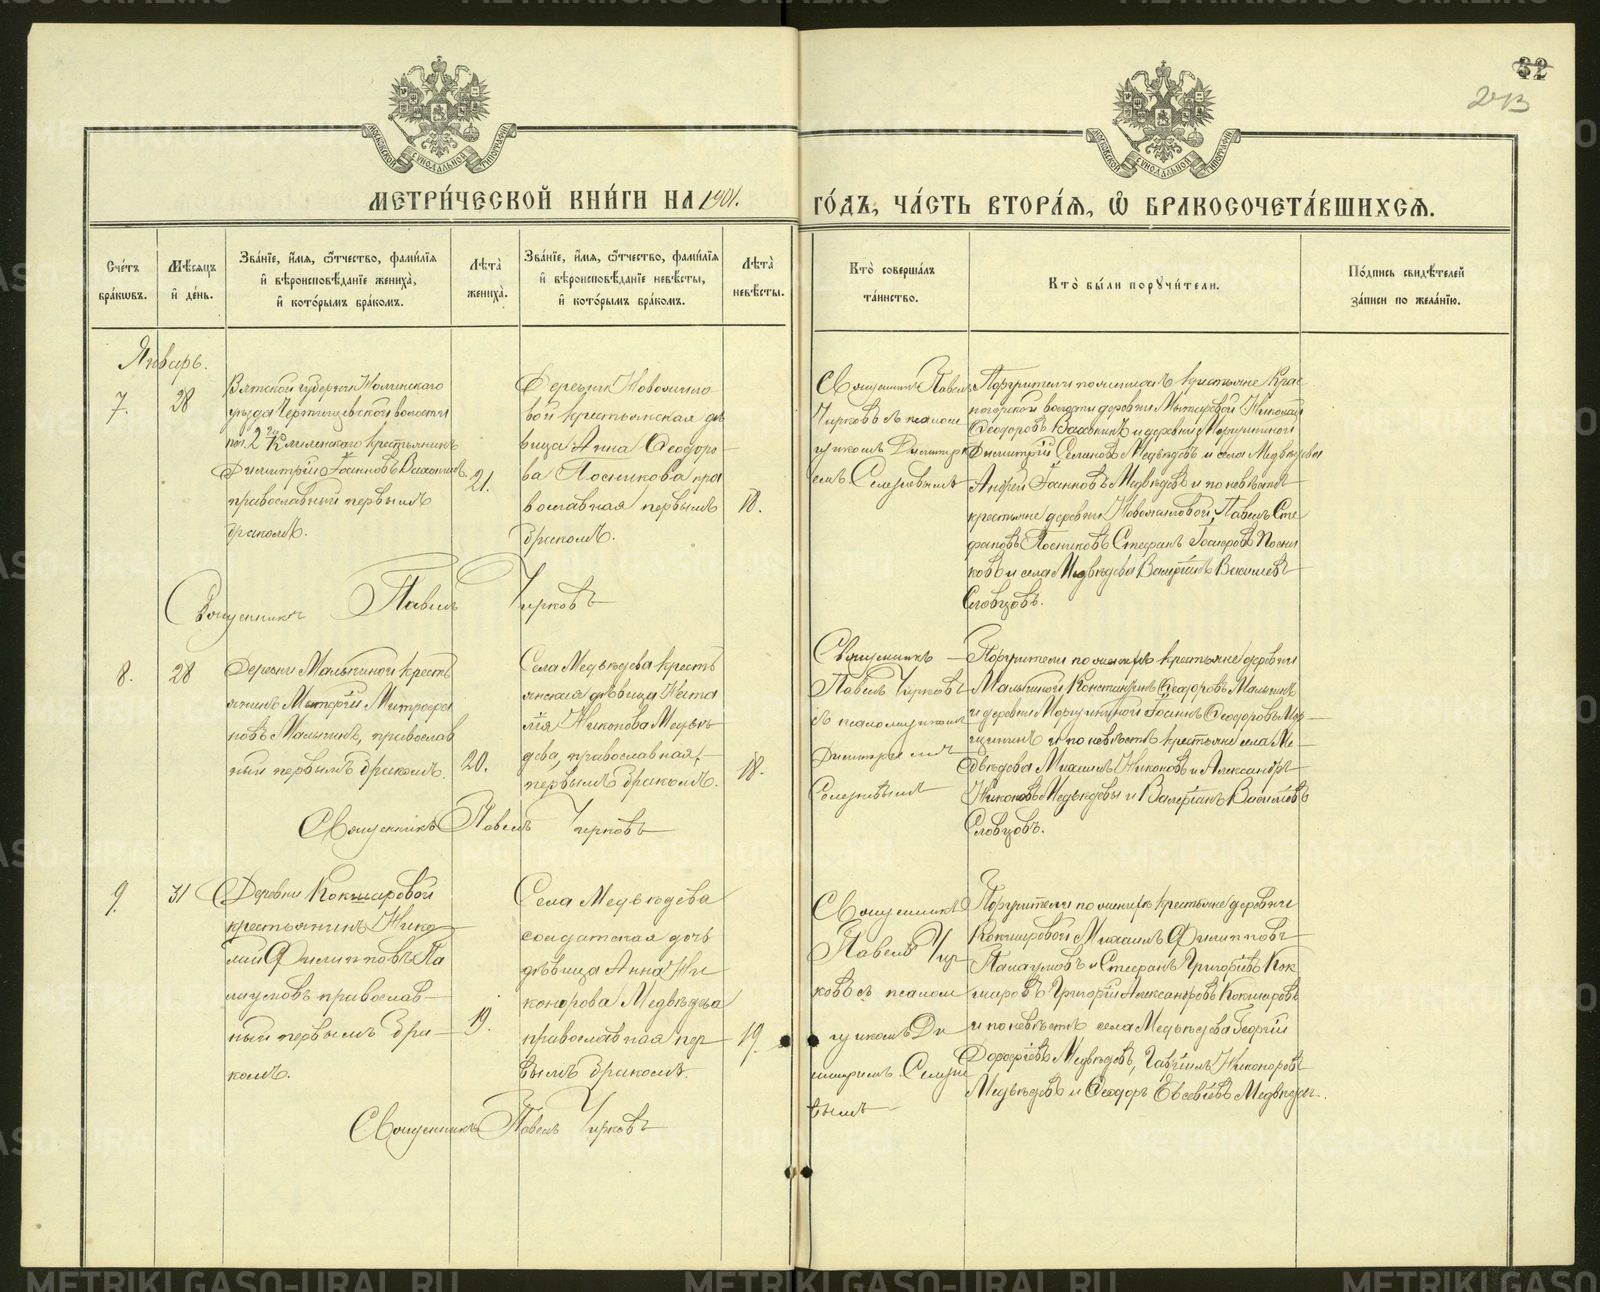 32
243
МОСКОВСКОЙ СѴНОДАЛЬНОЙ ТИПОГРАФІИ
МОСКОВСКОЙ СѴНОДАЛЬНОЙ ТИПОГРАФІИ
МЕТРИ́ЧЕСКОЙ КНИ́ГИ НА 1901.
ГО́ДЪ, ЧА́СТЬ ВТОРА́Я, Ѿ БРАКОСОЧЕТА́ВШИХСЯ.
Сче́тъ
бра́кѡвъ.
Мѣсяцъ
и́ день.
Зва́нїе, и́мя, ѻ́тчество, фами́лїя
и́ вѣроисповѣ́данїе жениха̀,
и́ кото́рымъ бра́комъ.
Лѣта̀
жениха̀.
Зва́нїе, и́мя, ѻ́тчество, фами́лїя
и́ вѣроисповѣ́данїе невѣ́сты,
и́ кото́рымъ бра́комъ.
Лѣта̀
невѣ́сты.
Кто̀ соверша́лъ
та́инство.
Кто̀ бы́ли порꙋчи́тели.
По́дпись свидѣ́телей
за́писи по жела́нїю.
Январь.
7.
28
Вятской губернiи Нолинскаго
уѣзда Чертищевской волости
крестьянинъ
Димитрiй Iоанновъ Вахонинъ
православный первымъ
бракомъ.
21.
Деревни Новожило
вой крестьянская дѣ
вица Анна Ѳеодоро
ва Посникова пра
вославная первымъ
бракомъ.
18.
Священникъ Павелъ
Чирковъ съ псалом
щикомъ Димитрi
емъ Селезневымъ
Поручители по женихѣ крестьяне Крас
ногорской волости деревни Мытаревой Николай
Ѳеодоровъ Вахонинъ и деревни Моршининой
Димитрiй Медвѣдевъ и села Медвѣдева
Андрей Iоанновъ Медвѣдевъ и по невѣстѣ
крестьяне деревни Новожиловой, Павелъ Сте
фановъ Посниковъ Стефанъ Посни
ковъ и села Медвѣдева Валерiанъ Васильевъ
Словцовъ.
Священникъ Павелъ Чирковъ
8.
28
Деревни Малыгиной кресть
янинъ Митрофа
новъ Малыгинъ, православ
ный первымъ бракомъ.
20.
Села Медвѣдева кресть
янская дѣвица Ната
лiя Никонова Медвѣ
дева, православная,
первымъ бракомъ.
18.
Священникъ
Павелъ Чирковъ
съ псаломщикомъ
Димитрiемъ
Селезневымъ
Поручители по женихѣ крестьяне деревни
Малыгиной Константинъ Ѳеодоровъ Малыгинъ
и деревни Моршининой Iоаннъ Ѳеодоровъ Мор
шининъ и по невѣстѣ крестьяне села Ме
двѣдева Михаилъ Никоновъ и Александръ
Никоновъ Медвѣдевы и Валерiанъ Васильевъ
Словцовъ.
Священникъ Павелъ Чирковъ
9.
31
Деревни Кокшаровой
крестьянинъ Нико
лай Филипповъ Па
лаумовъ православ
ный первымъ бра
комъ.
19.
Села Медвѣдева
солдатская дочь
дѣвица Анна Ни
канорова Медвѣдева
православная пер
вымъ бракомъ.
19.
Священникъ
Павелъ Чир
ковъ съ псалом
щикомъ Ди
митрiемъ Селезне
вымъ
Поручители по женихѣ крестьяне деревни
Кокшаровой Михаилъ Филипповъ
Палаумовъ и Стефанъ Григорьевъ Кок
шаровъ Григорiй Александровъ Кокшаровъ
и по невѣстѣ села Медвѣдева Георгiй
Дорофѣевъ Медвѣдевъ, Гаврiилъ Никаноровъ
Медвѣдевъ и Ѳеодоръ Евсевiевъ Медвѣдевъ.
Священникъ Павелъ Чирковъ
METRIKI.GASO-URAL.RU